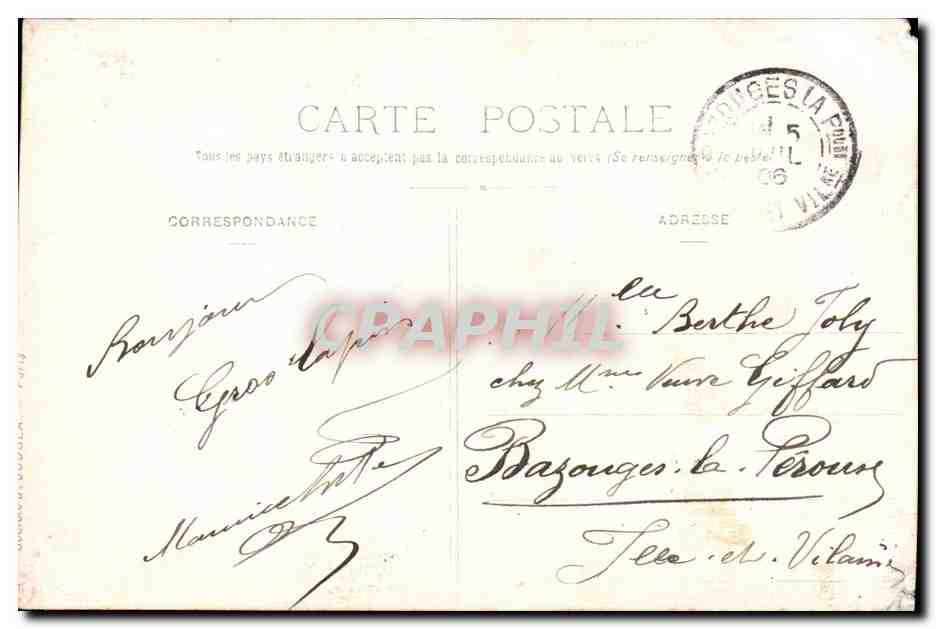 CARTE POSTALE
Tous les pays étrangers n'acceptent pas la correspondance au verso (Se renseigner à la poste)
CORRESPONDANCE
ADRESSE
BAZOUGES LA PEROUSE
5
JUIL
06
ILLE ET VILAINE
Bonjour
Gros Lapin
Maurice
Melle Berthe Joly
chez Mme Veuve Giffard
Bazouges-la-Pérouse
Ille-et-Vilaine
CPAPHIL